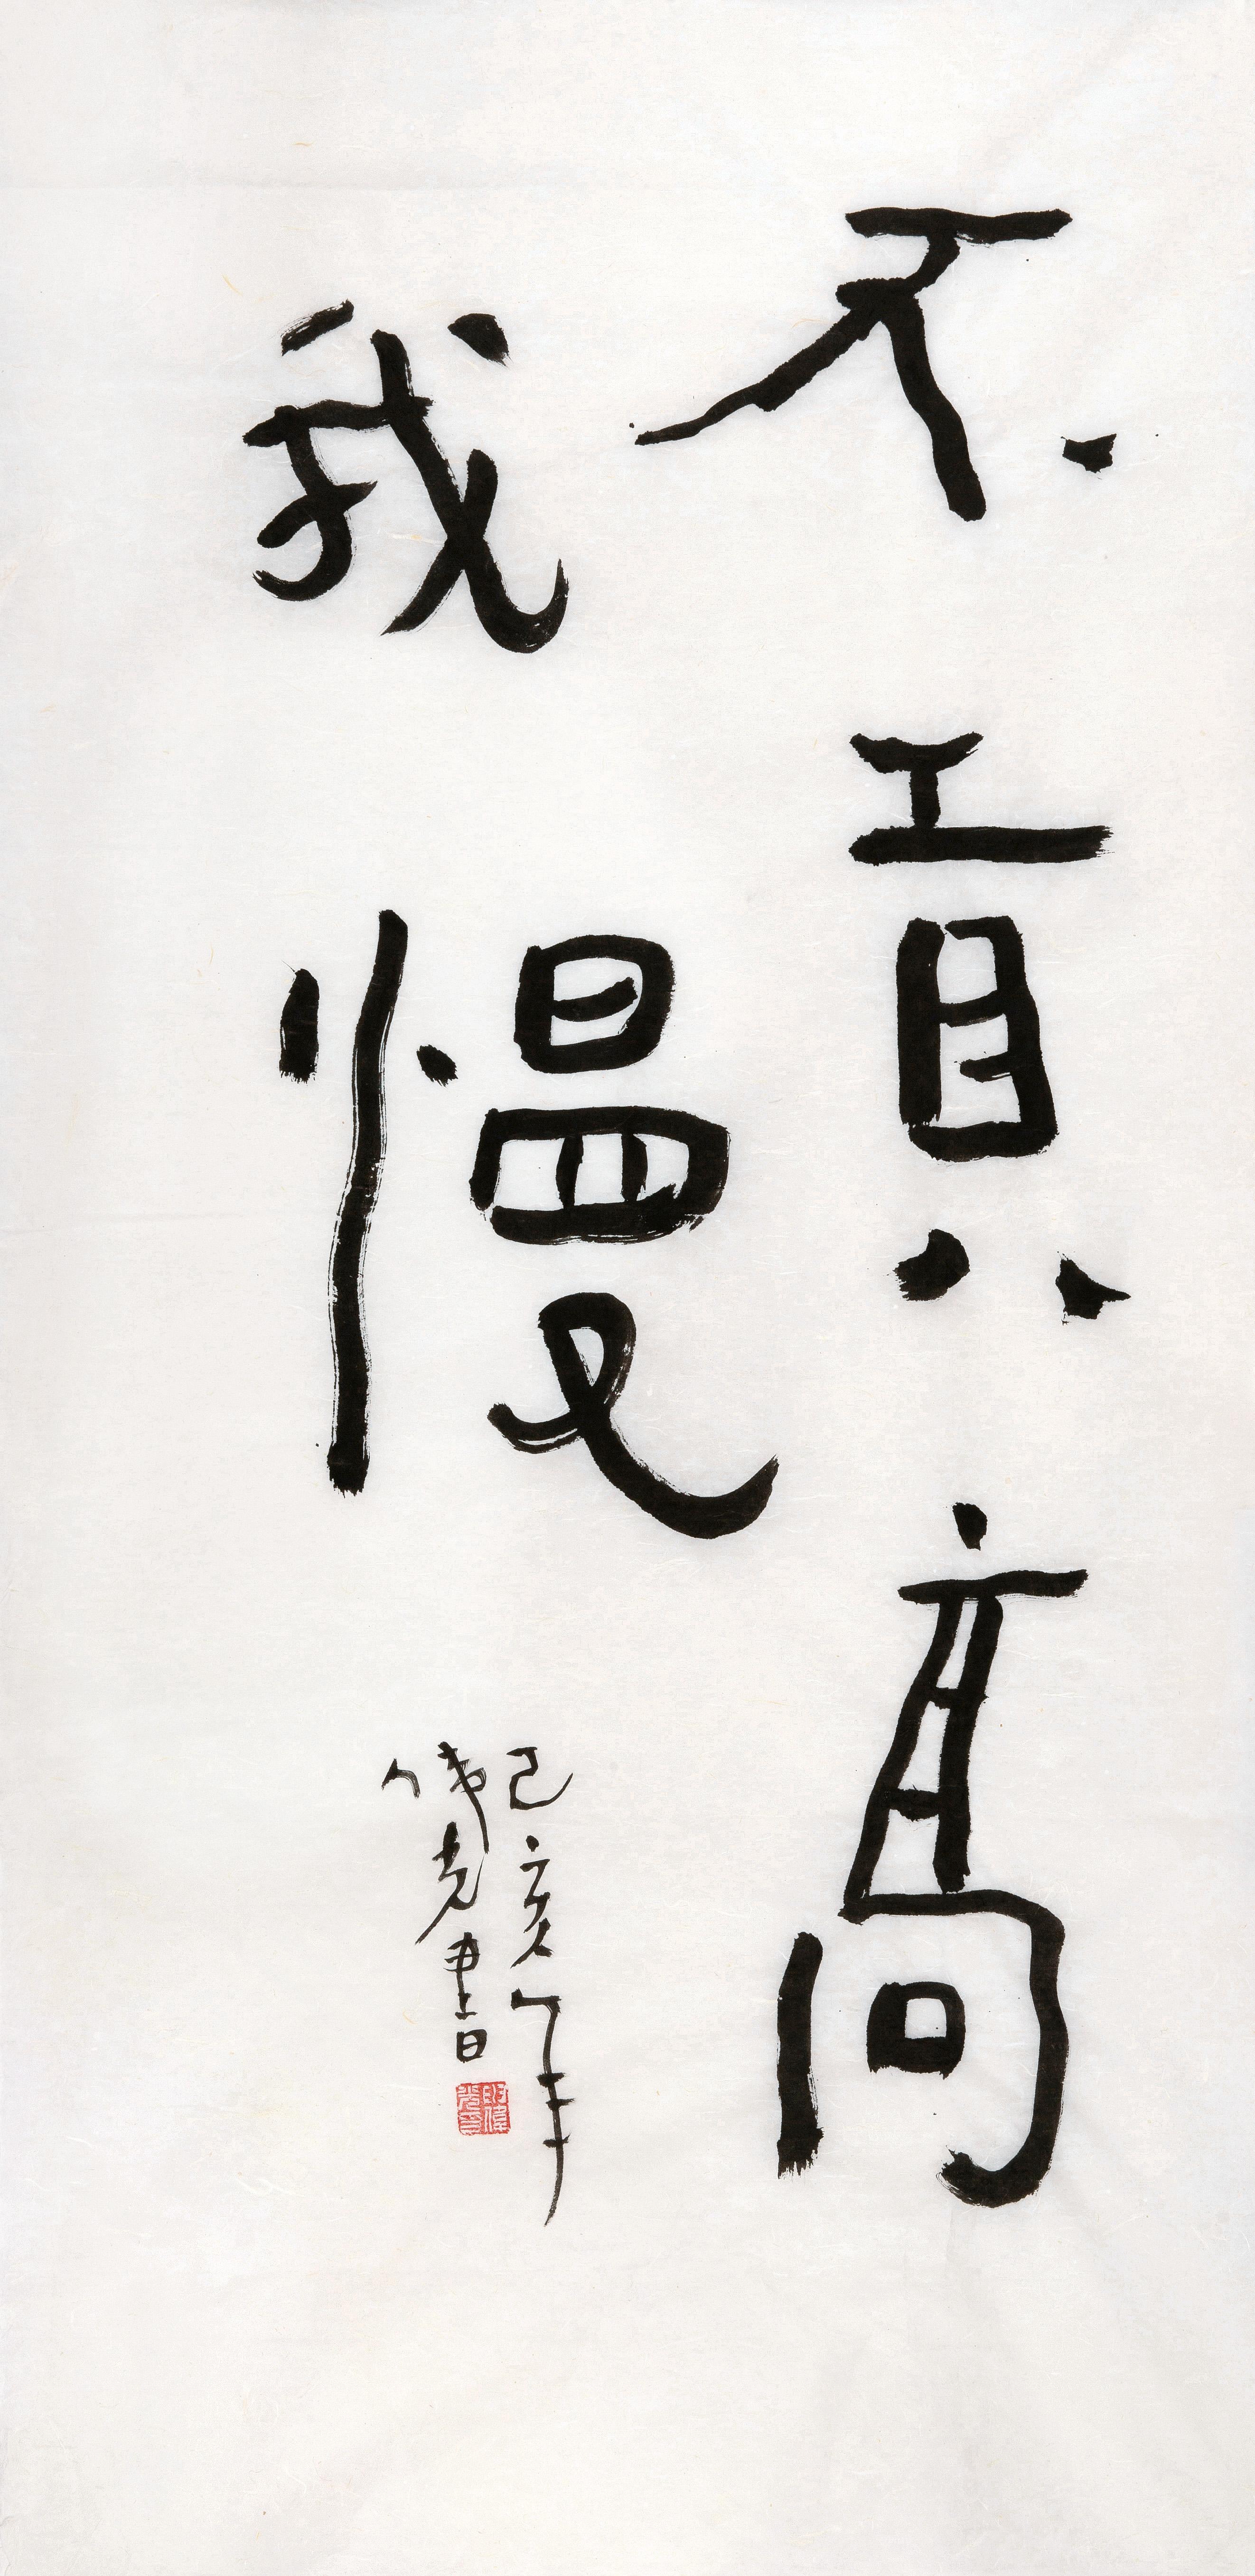 不貢高
我慢
己亥年
書